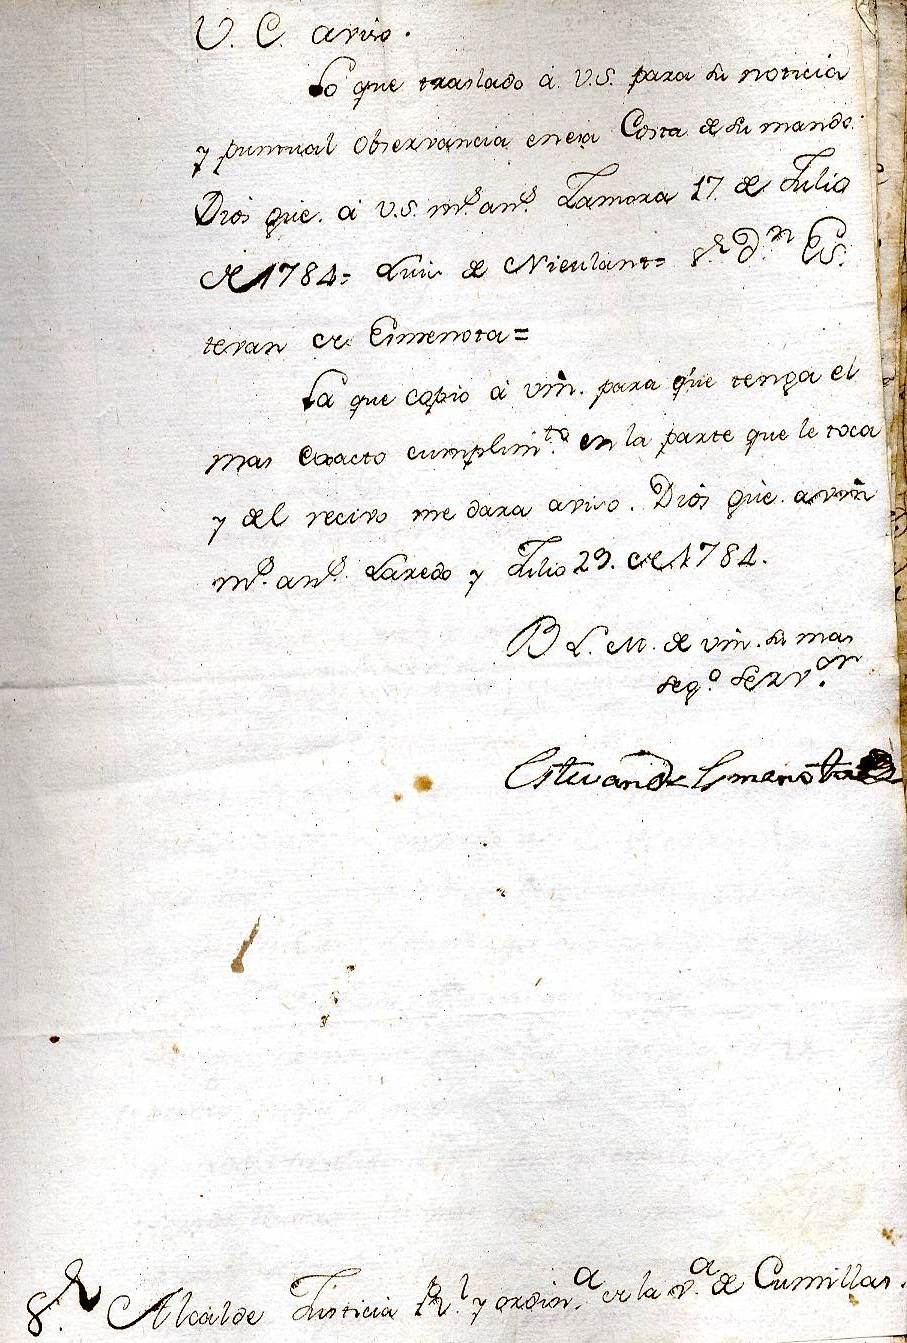 V. C. aviso.
Lo que traslado á V.S. para su noticia
y puntual observancia en esa Costa de su mando.
Dios gûe. á V.S. m.s an.s Zamora 17. de Julio
de 1784= Luis de Nieulant= S.r D.n Es
tevan de Eimenota=
Lo que copio á vm̃. para que tenga el
mas exacto cumplim.to en la parte que le toca
y del recivo me dara aviso. Dios gûe. a vm̃
m.s an.s Laredo y Julio 23. de 1784.
B L. M. de vm̃. su mas
seg.o serv.or
Estevan de
S.r Alcalde Justicia R.l y ordin.a de la v.a de Cumillas.